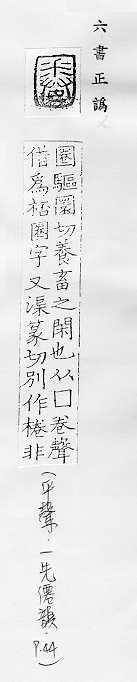 六書正譌
圈驅圜切養畜之閑也从囗卷聲
借爲桮圈字又渠篆切別作棬非
(平聲．一先僊韻．P.44)